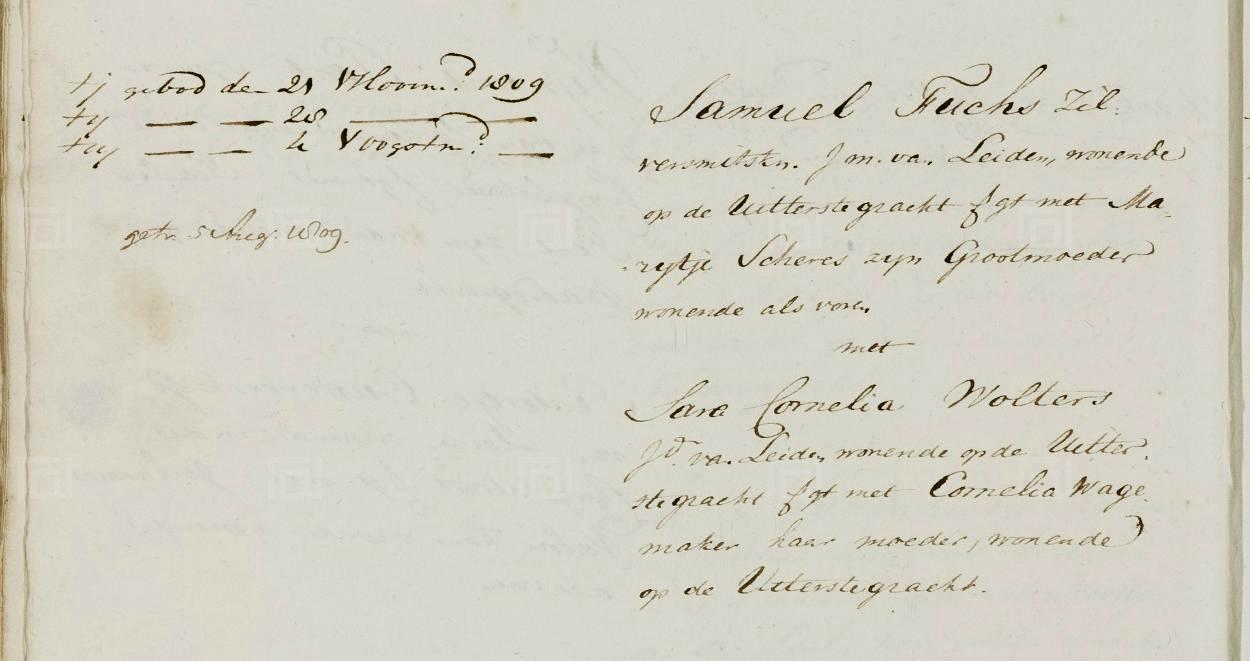 tj gebod den 21 Hooim.d 1809
tij — — 28 — —
tiij — — 4 Oogstm.d —
getr. 5 Aug. 1809.
Samuel Fuchs Zil-
versmitskn. Jm. van Leiden, wonende
op de Uitterstegracht sgt met Ma-
rijtje Scheres zijn Grootmoeder
wonende als voren
met
Sara Cornelia Wolters
Jd. van Leiden wonende op de Uitter-
stegracht sgt met Cornelia Wage-
maker haar moeder, wonende
op de Uitterstegracht.